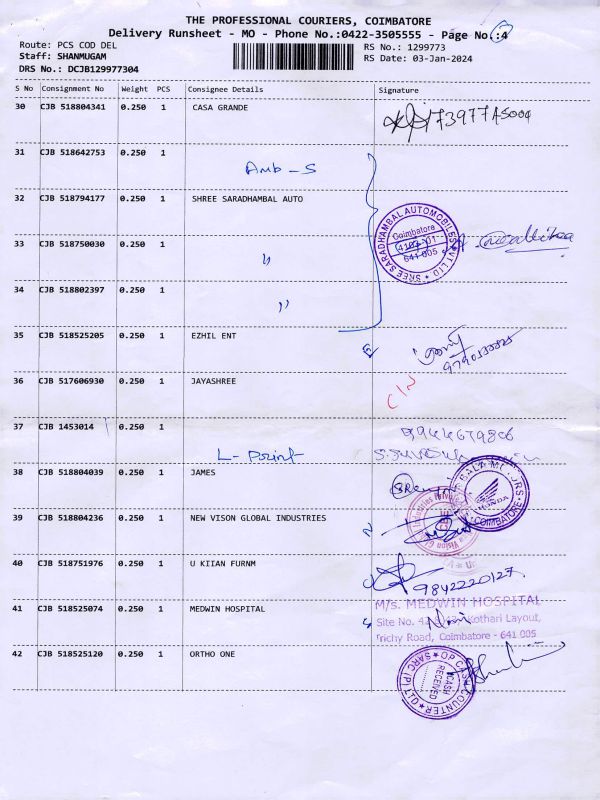 THE PROFESSIONAL COURIERS, COIMBATORE
Delivery Runsheet - MO - Phone No.:0422-3505555 - Page No.:4
Route: PCS COD DEL
RS No.: 1299773
Staff: SHANMUGAM
RS Date: 03-Jan-2024
DRS No.: DCJB129977304
S No Consignment No Weight PCS Consignee Details Signature
30 CJB 518804341 0.250 1 CASA GRANDE
31 CJB 518642753 0.250 1
Amb - S
32 CJB 518794177 0.250 1 SHREE SARADHAMBAL AUTO
SREE SARADHAMBAL AUTOMOBILES PVT LTD
Coimbatore
641 005
33 CJB 518750030 0.250 1 "
34 CJB 518802397 0.250 1 "
35 CJB 518525205 0.250 1 EZHIL ENT
36 CJB 517606930 0.250 1 JAYASHREE
37 CJB 1453014 0.250 1
9944679806
L- Point
38 CJB 518804039 0.250 1 JAMES
HONDA
COIMBATORE
39 CJB 518804236 0.250 1 NEW VISON GLOBAL INDUSTRIES
40 CJB 518751976 0.250 1 U KIIAN FURNM
9842220127
41 CJB 518525074 0.250 1 MEDWIN HOSPITAL
M/s. MEDWIN HOSPITAL
Site No. Kothari Layout,
Trichy Road, Coimbatore - 641 005
42 CJB 518525120 0.250 1 ORTHO ONE
OP CASH COUNTER
CASH
RECEIVED
SARC (P) LTD